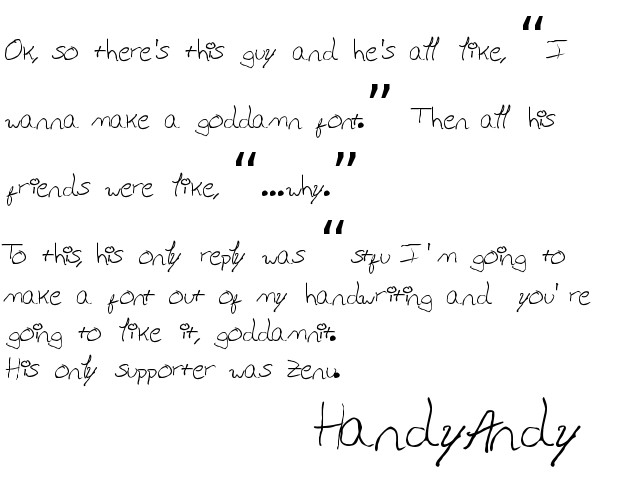 Ok, so there's this guy and he's all like, “I
wanna make a goddamn font.” Then all his
friends were like, “...why.”
To this, his only reply was “stfu I'm going to
make a font out of my handwriting and you're
going to like it, goddamnit.
His only supporter was Zenu.
HandyAndy